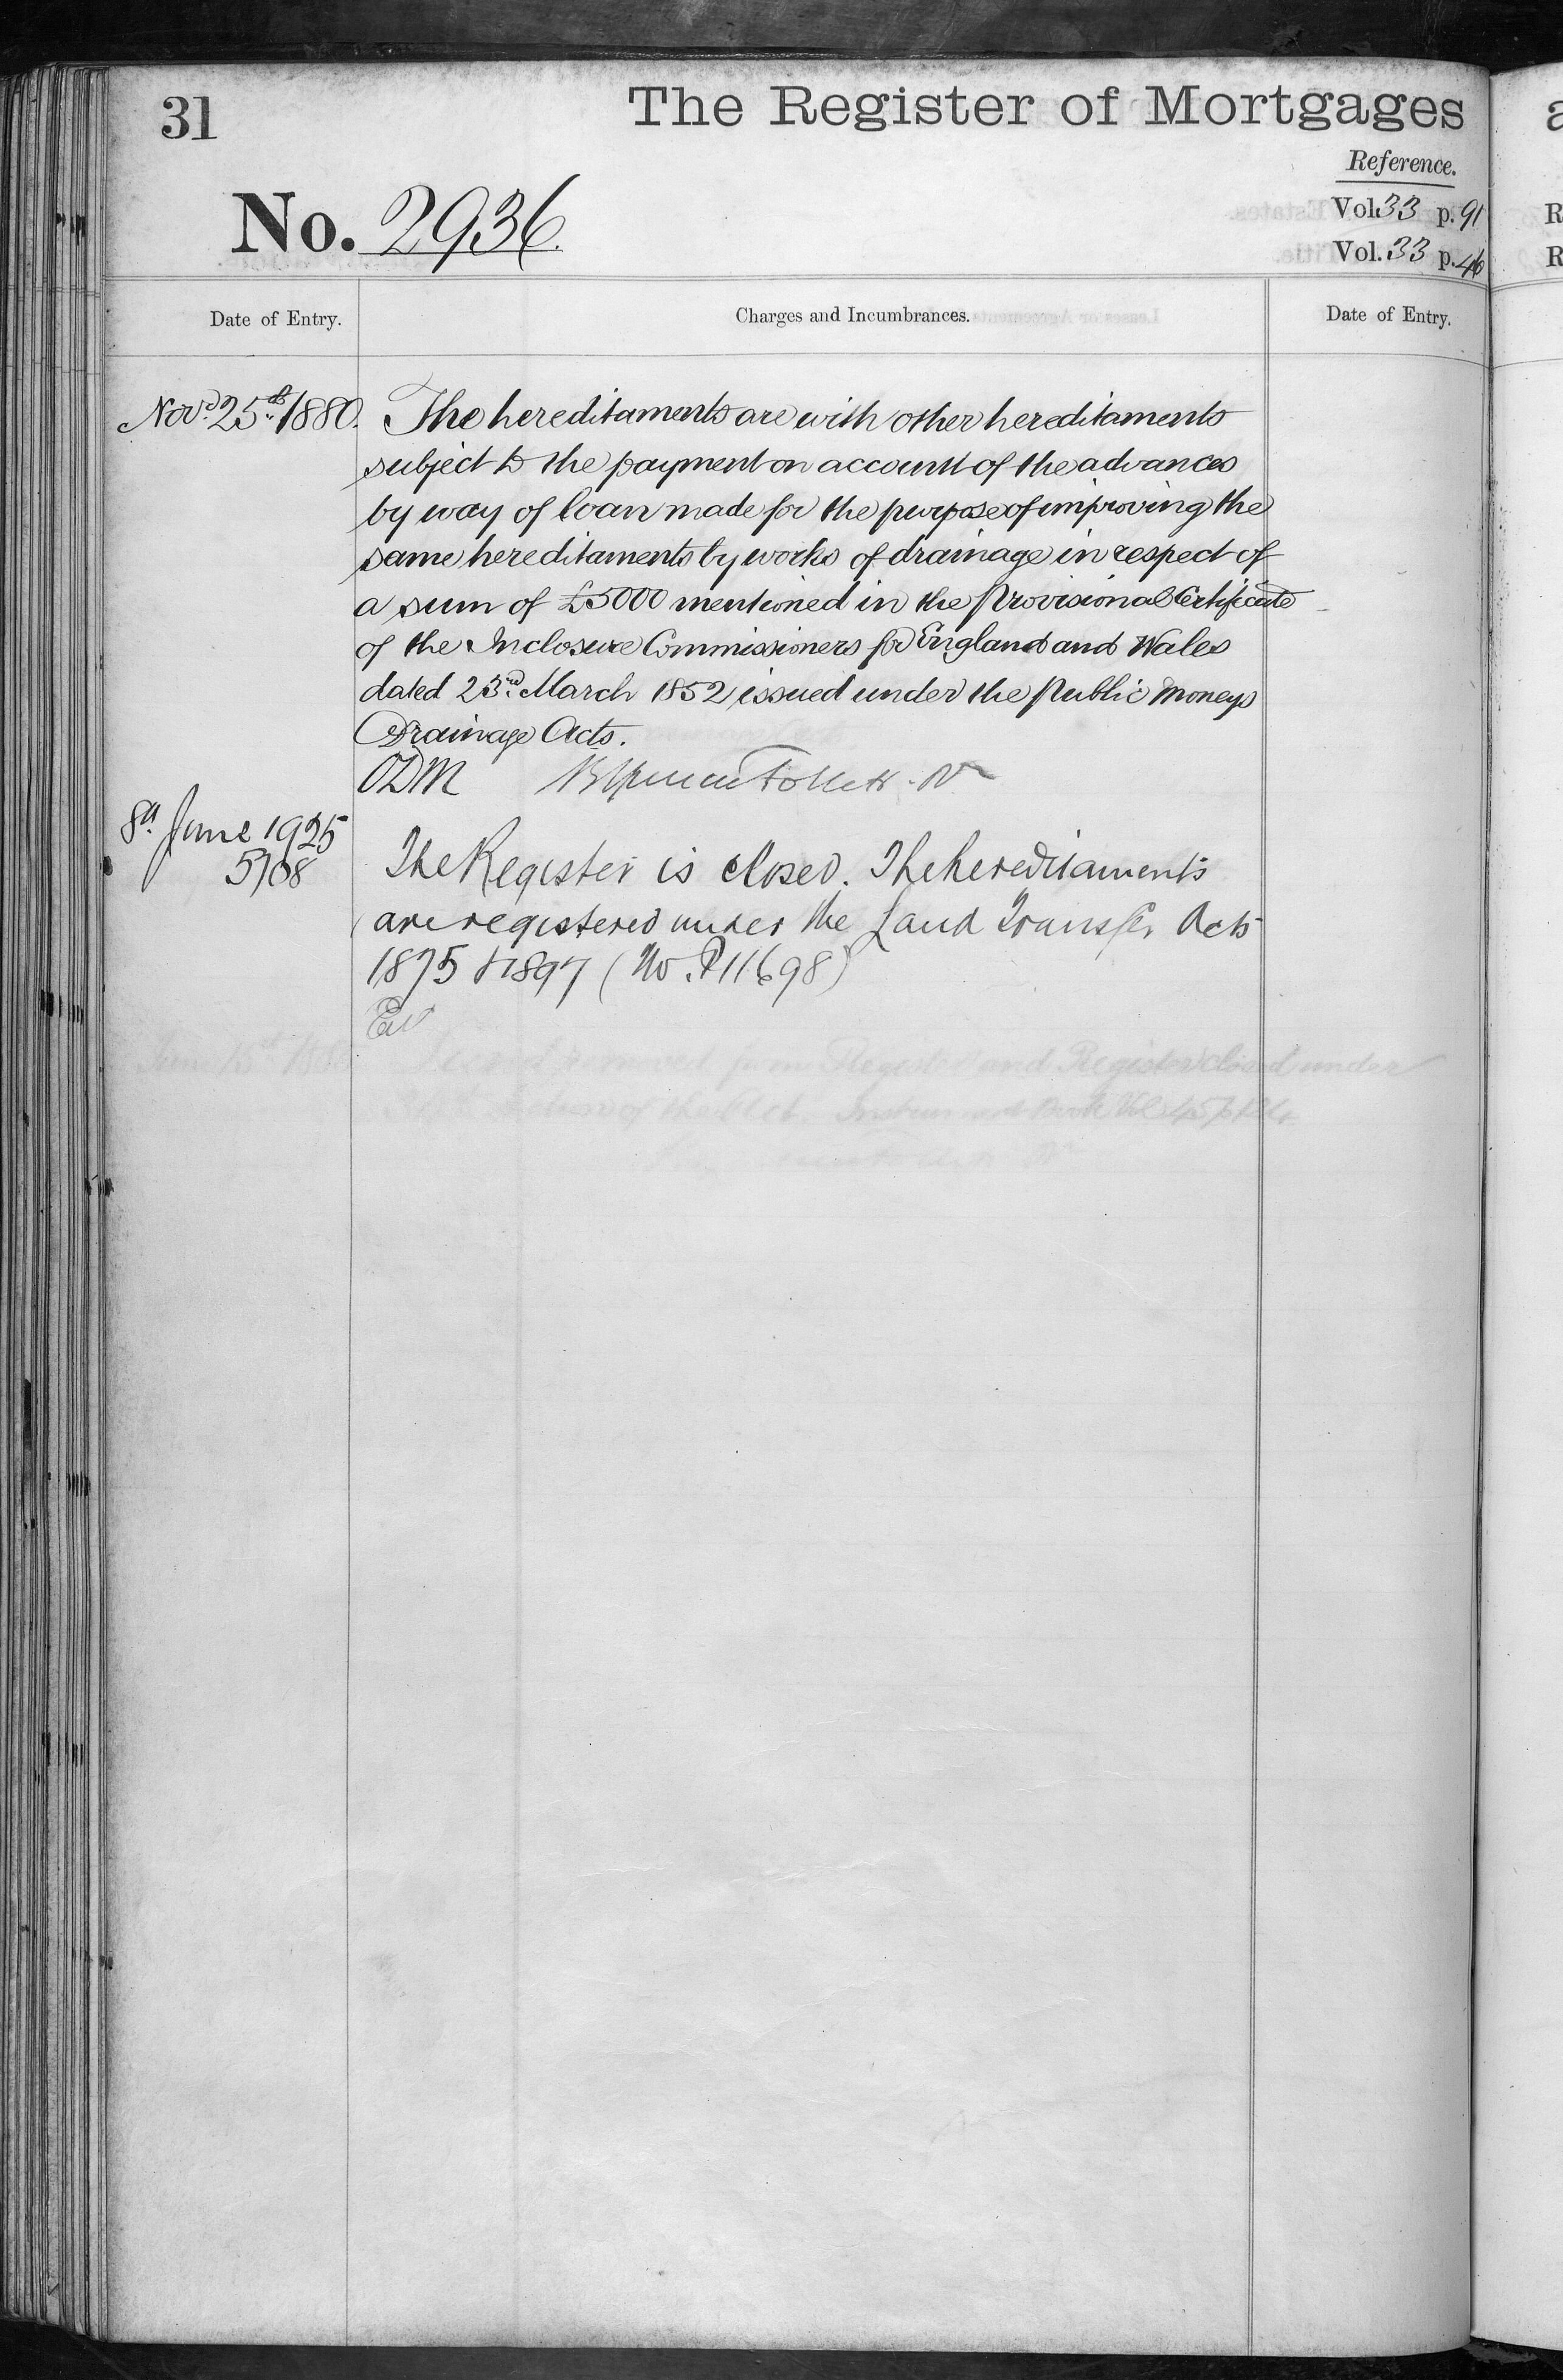 31
The Register of Mortgages
Reference.
No. 2936.
Vol. 33 p. 91
Vol. 33 p. 46
Date of Entry.
Charges and Incumbrances.
Date of Entry.
Novr. 25th 1880.
The hereditaments are with other hereditaments
subject to the payment on account of the advances
by way of loan made for the purpose of improving the
same hereditaments by works of drainage in respect of
a sum of £5000 mentioned in the Provisional Certificate
of the Inclosure Commissioners for England and Wales
dated 23rd. March 1852 issued under the Public Moneys
Drainage Acts.
ODM
Follett
8th June 1925
5708
The Register is closed. The hereditaments
are registered under the Land Transfer Acts
1875 & 1897 (No. P11698)
removed from Register and Register closed under
of the Act. Instrument Book Vol